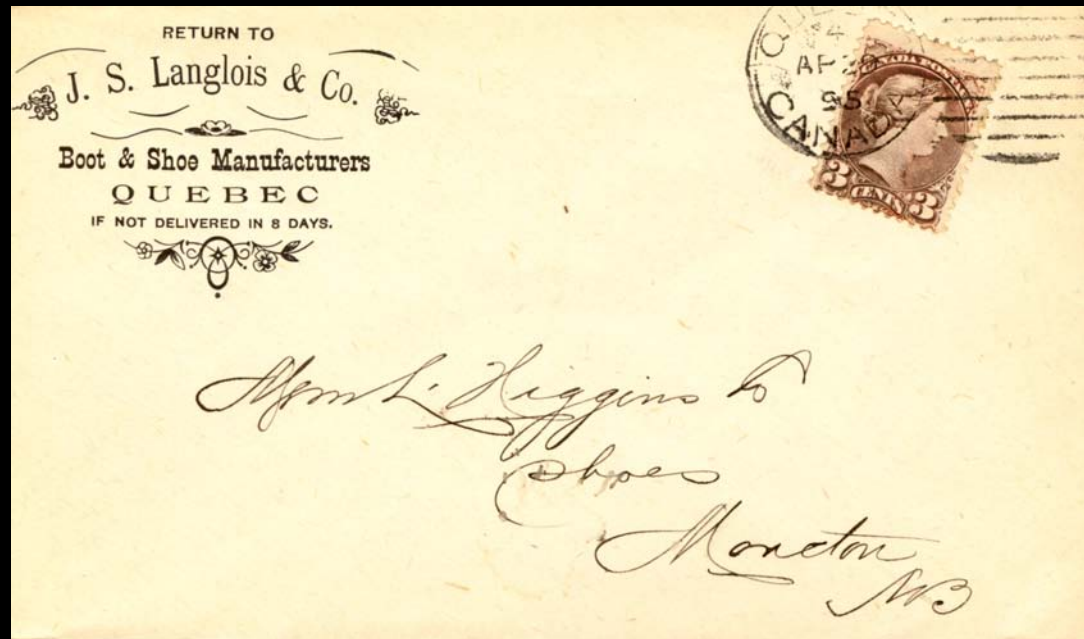 RETURN TO
J. S. Langlois & Co.
Boot & Shoe Manufacturers
QUEBEC
IF NOT DELIVERED IN 8 DAYS.
AP 29
95
CANADA
CANADA POSTAGE
3 CENTS 3
L. Higgins Co
Shoes
Moncton
NB